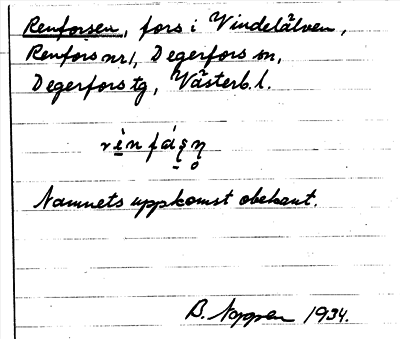 Renforsen, fors i Vindelälven,
Renfors nr 1, Degerfors sn,
Degerfors tg, Västerb. l.
Namnets uppkomst obekant.
B. 1934.